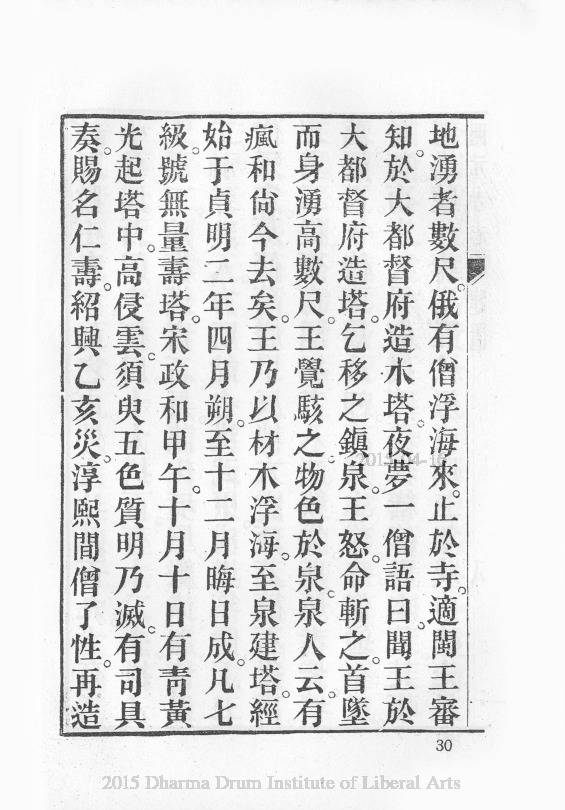 地湧者數尺。俄有僧浮海來。止於寺。適閩王審
知。於大都督府造木塔。夜夢一僧語曰。聞王於
大都督府造塔。乞移之鎮泉。王怒。命斬之。首墜
而身湧高數尺。王覺駭之。物色於泉。泉人云。有
瘋和尙今去矣。王乃以材木浮海。至泉建塔。經
始于貞明二年四月朔。至十二月晦日成。凡七
級。號無量壽塔。宋政和甲午。十月十日有靑黃
光起塔中。高侵雲。須臾五色質明乃滅。有司具
奏。賜名仁壽。紹興乙亥災。淳熙間僧了性。再造
30
2015 Dharma Drum Institute of Liberal Arts